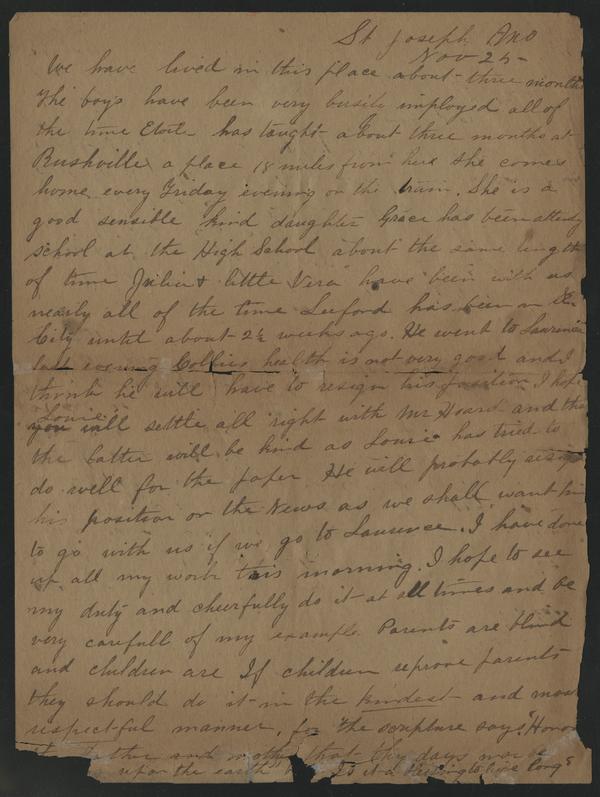 St Joseph Mo
Nov 25-
We have lived in this place about three months
The boys have been very busily imployed all of
the time Etoile has taught about three months at
Rushville a place 18 miles from here she comes
home every Friday evening on the train. She is a
good sensible kind daughter Grace has been attending
school at the High School about the same length
of time Julia & little Vera have been with us
nearly all of the time Luford has been in
City until about 2½ weeks ago. He went to Lawrence
last evening Collies health is not very good and I
think he will have to resign his position I hope
Lourie
will settle all right with Mr Heard and that
the latter will be kind as Lourie has tried to
do well for the paper He will probably resign
his position on the News as we shall want him
to go with us if we go to Lawrence. I have done
up all my work this morning. I hope to see
my duty and cheerfully do it at all times and be
very carefull of my example. Parents are blind
and children are If children reprove parents
they should do it in the kindest and most
respectful manner, for the scripture says "Honor
father and mother that thy days may be
upon the earth" Is it a blessing to live long?